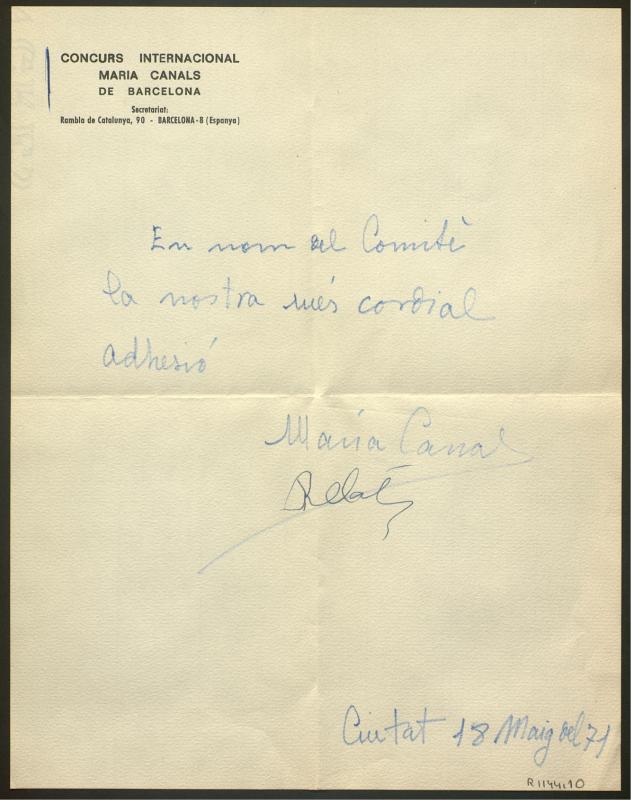 CONCURS INTERNACIONAL
MARIA CANALS
DE BARCELONA
Secretariat:
Rambla de Catalunya, 90 - BARCELONA-8 (Espanya)
En nom del Comitè
la nostra més cordial
adhesió
Maria Canals
Ciutat 18 Maig del 71
R.1144,10